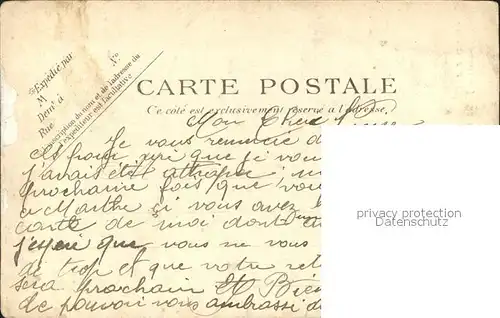 Expédié par
M
N°
Dem<sup>t</sup> à
Rue
L'inscription du nom et de l'adresse du
l'expéditeur est facultative
CARTE POSTALE
Ce côté est exclusivement réservé à l'adresse.
Mon Cher
Je vous remercie d
et pour que je vou
j'avais été
prochaine fois que vou
a Marthe si vous avez
conte de moi dont
j'espère que vous ne vous
de trop et que votre ret
sera prochain Et Bien
de pouvoir vous ambrassi d
privacy protection
Datenschutz